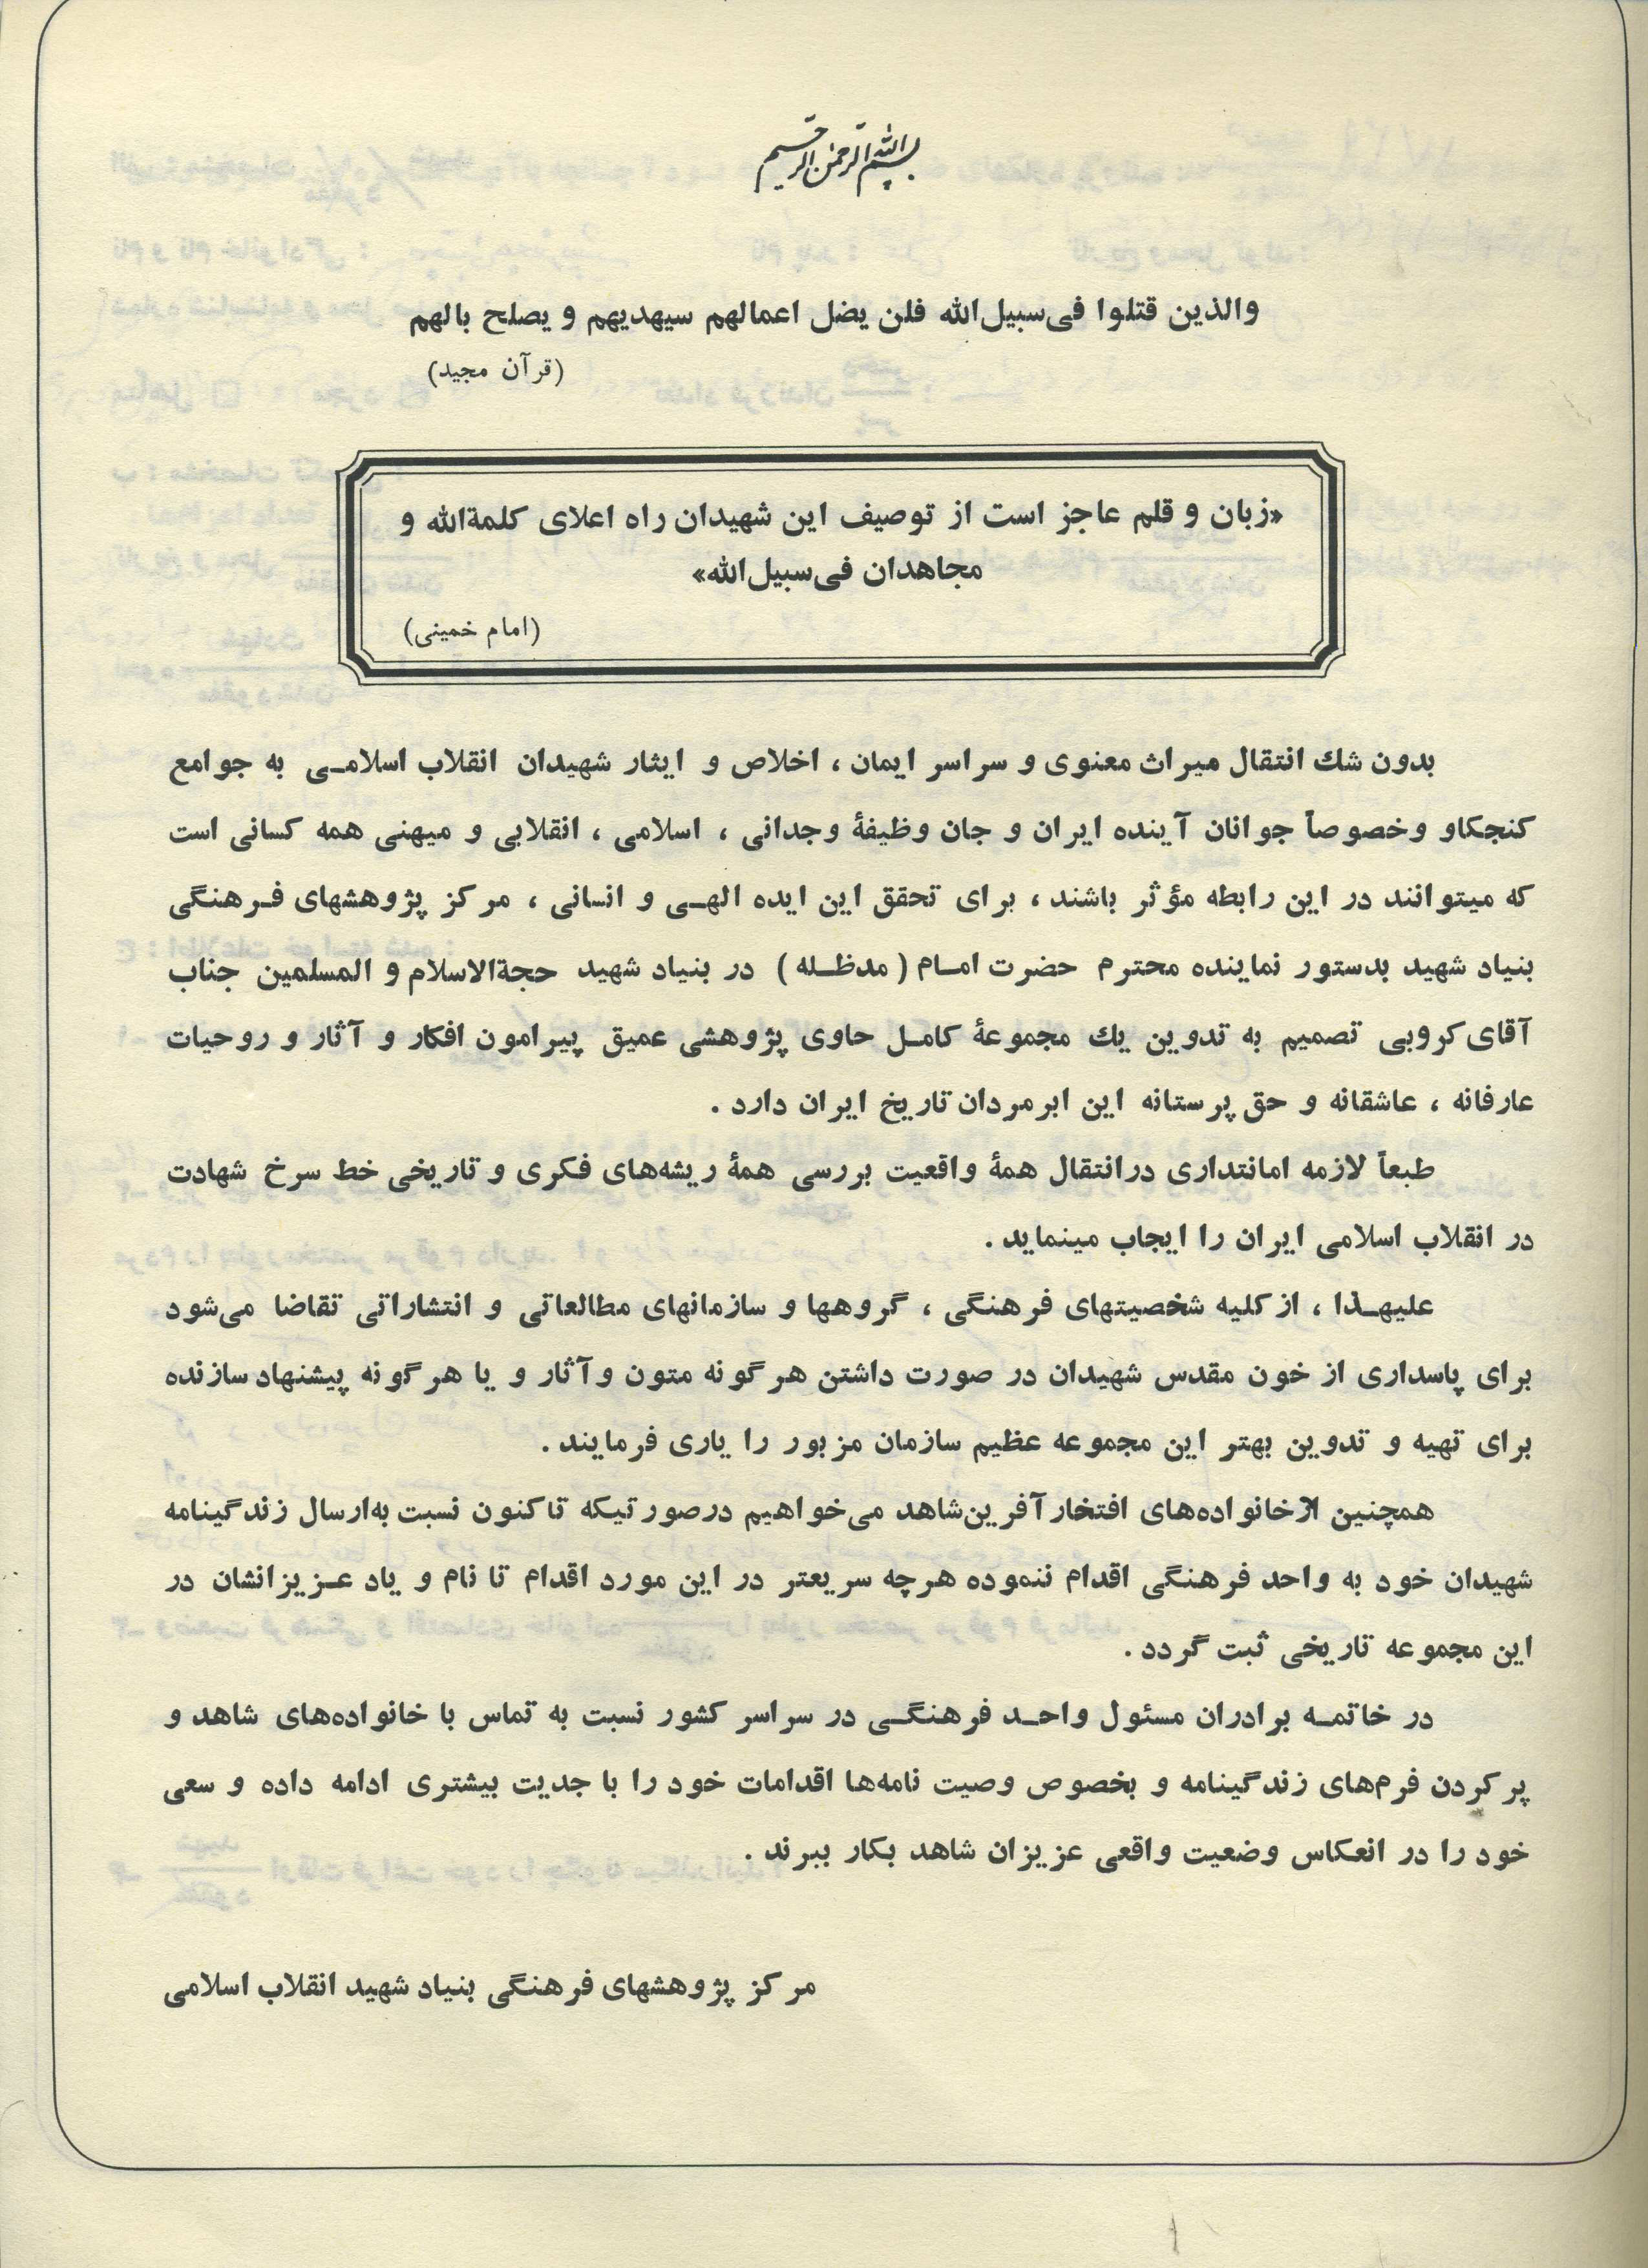 بسم الله الرحمن الرحیم
والذین قتلوا فی‌سبیل‌الله فلن یضل اعمالهم سیهدیهم و یصلح بالهم
(قرآن مجید)
«زبان و قلم عاجز است از توصیف این شهیدان راه اعلای کلمةالله و
مجاهدان فی‌سبیل‌الله»
(امام خمینی)
بدون شك انتقال میراث معنوی و سراسر ایمان ، اخلاص و ایثار شهیدان انقلاب اسلامـی به جوامع
کنجکاو وخصوصاً جوانان آینده ایران و جان وظیفهٔ وجدانی ، اسلامی ، انقلابی و میهنی همه کسانی است
که میتوانند در این رابطه مؤثر باشند ، برای تحقق این ایده الهـی و انسانی ، مرکز پژوهشهای فـرهنگی
بنیاد شهید بدستور نماینده محترم حضرت امـام (مدظـله) در بنیاد شهید حجةالاسلام و المسلمین جناب
آقای‌کروبی تصمیم به تدوین یك مجموعهٔ کامـل حاوی پژوهشی عمیق پیرامون افکار و آثار و روحیات
عارفانه ، عاشقانه و حق پرستانه این ابرمردان تاریخ ایران دارد .
طبعاً لازمه امانتداری درانتقال همهٔ واقعیت بررسی همهٔ ریشه‌های فکری و تاریخی خط سرخ شهادت
در انقلاب اسلامی ایران را ایجاب مینماید .
علیهـذا ، از کلیه شخصیتهای فرهنگی ، گروهها و سازمانهای مطالعاتی و انتشاراتی تقاضا می‌شود
برای پاسداری از خون مقدس شهیدان در صورت داشتن هرگونه متون وآثار و یا هرگونه پیشنهاد سازنده
برای تهیه و تدوین بهتر این مجموعه عظیم سازمان مزبور را یاری فرمایند .
همچنین ازخانواده‌های افتخارآفرین‌شاهد می‌خواهیم درصورتیکه تاکنون نسبت به‌ارسال زندگینامه
شهیدان خود به واحد فرهنگی اقدام ننموده هرچه سریعتر در این مورد اقدام تا نام و یاد عـزیزانشان در
این مجموعه تاریخی ثبت گردد .
در خاتمـه برادران مسئول واحـد فرهنگـی در سراسر کشور نسبت به تماس با خانواده‌های شاهد و
پرکردن فرم‌های زندگینامه و بخصوص وصیت نامه‌ها اقدامات خود را با جدیت بیشتری ادامه داده و سعی
خود را در انعکاس وضعیت واقعی عزیزان شاهد بکار ببرند .
مرکز پژوهشهای فرهنگی بنیاد شهید انقلاب اسلامی